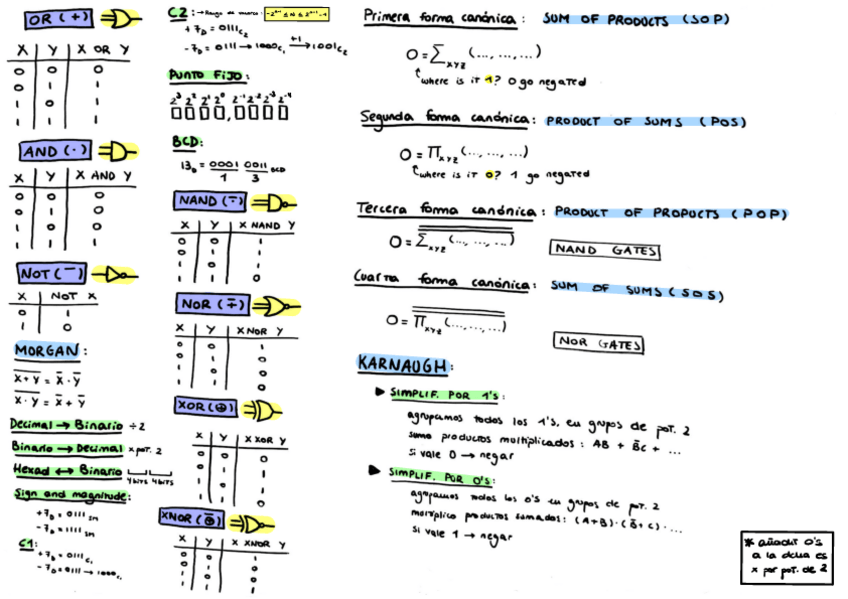 OR (+)
X Y X OR Y
0 0 0
0 1 1
1 0 1
1 1 1
AND (·)
X Y X AND Y
0 0 0
0 1 0
1 0 0
1 1 1
NOT (¯)
X NOT X
0 1
1 0
MORGAN:
Decimal → Binario ÷2
Binario → Decimal x pot. 2
Hexad ↔ Binario
4 bits 4 bits
Sign and magnitude:
+7D = 0111 SM
-7D = 1111 SM
C1:
+7D = 0111 C1
-7D = 0111 → 1000 C1
C2: → Rango de valores:
+7D = 0111 C2
-7D = 0111 → 1000 C1 +1→ 1001 C2
PUNTO FIJO:
2³ 2² 2¹ 2⁰ 2⁻¹ 2⁻² 2⁻³ 2⁻⁴
BCD:
13D = 0001 0011 BCD
1 3
NAND
X Y X NAND Y
0 0 1
0 1 1
1 0 1
1 1 0
NOR
X Y X NOR Y
0 0 1
0 1 0
1 0 0
1 1 0
XOR (⊕)
X Y X XOR Y
0 0 0
0 1 1
1 0 1
1 1 0
XNOR
X Y X XNOR Y
0 0 1
0 1 0
1 0 0
1 1 1
Primera forma canónica: SUM OF PRODUCTS (SOP)
O = Σ xyz (..., ..., ...)
where is it 1? 0 go negated
Segunda forma canónica: PRODUCT OF SUMS (POS)
O = Π xyz (..., ..., ...)
where is it 0? 1 go negated
Tercera forma canónica: PRODUCT OF PROPUCTS (POP)
O = Σ xyz (..., ..., ...)
NAND GATES
Cuarta forma canónica: SUM OF SUMS (SOS)
O = Π xyz (..., ..., ...)
NOR GATES
KARNAUGH:
SIMPLIF. POR 1's:
agrupamos todos los 1's, en grupos de pot. 2
sumo productos multiplicados: AB + B̄C + ...
si vale 0 → negar
SIMPLIF. POR 0's:
agrupamos todos los 0's en grupos de pot. 2
multiplico productos sumados: (A+B)·(B̄+C)·...
si vale 1 → negar
* añadir 0's
a la dcha es
x por pot. de 2